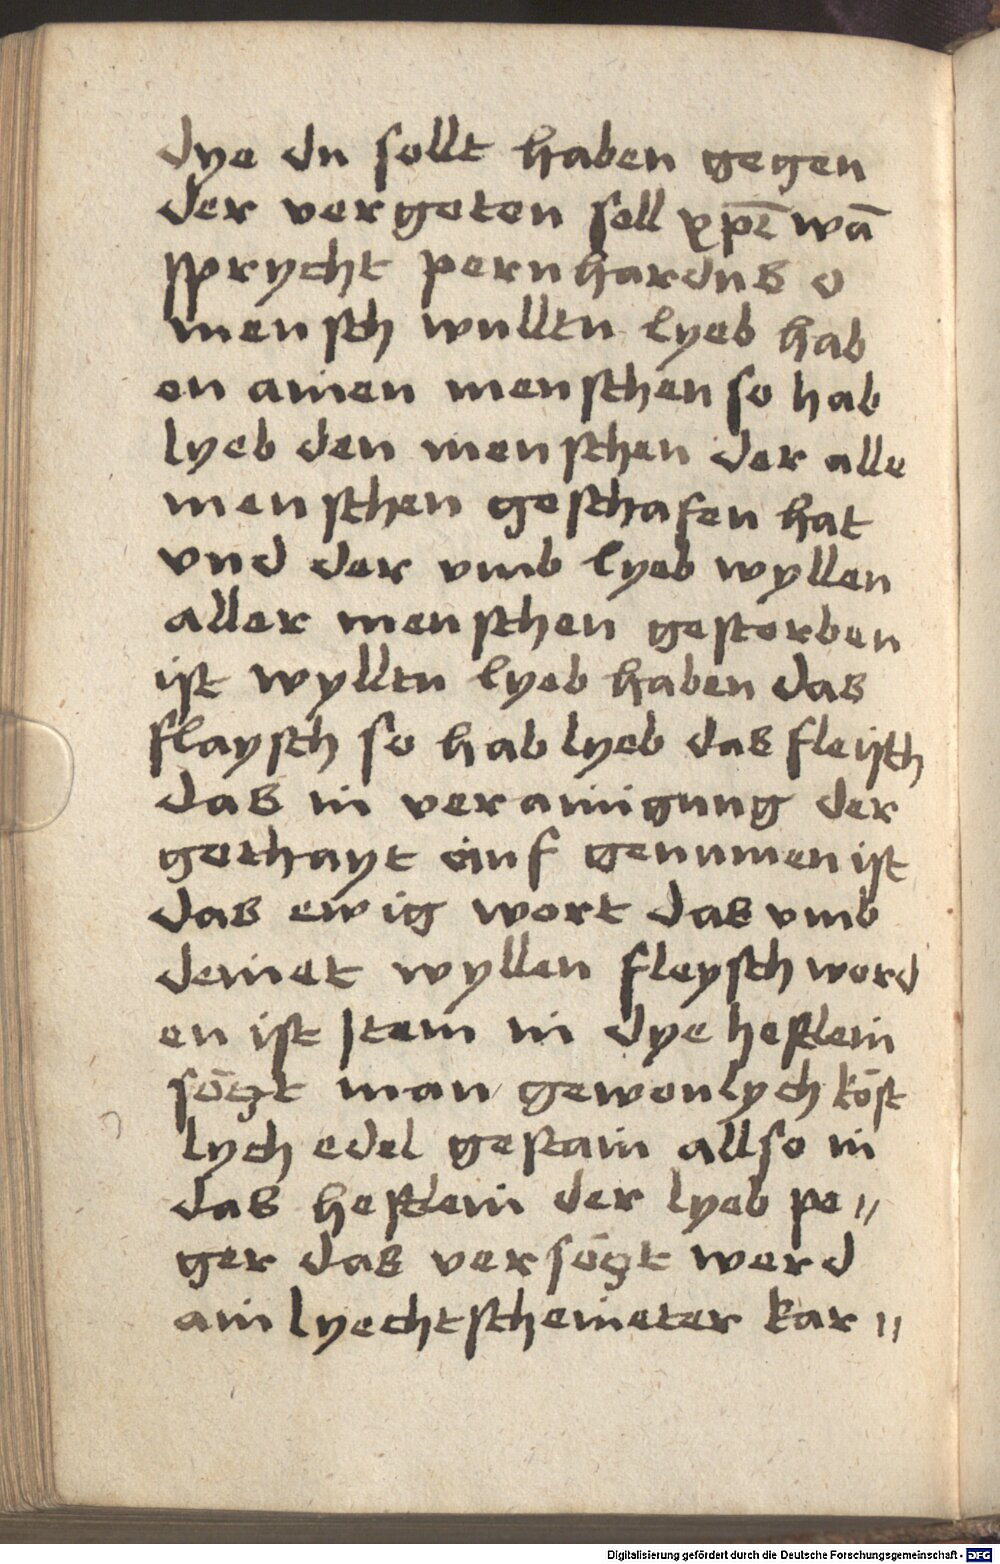 dye du sollt haben gegen
der vergoten sell xp̄i wā
sprycht pernhardus o
mensch wulltu lyeb hab
en ainen menschen so hab
lyeb den menschen der alle
menschen geschafen hat
vnd der vmb lyeb wyllen
aller menschen gestorben
ist wylltu lyeb haben das
flaysch so hab lyeb das fleisch
das in verainigung der
gothayt auf genumen ist
das ewig wort das vmb
deinet wyllen fleysch word
en ist Item in dye heftlein
söczt man gewonlych köst
lych edel gestain allso in
das heftlein der lyeb pe〃
ger das versöczt werd
ain lyechtscheineter kar〃
Digitalisierung gefördert durch die Deutsche Forschungsgemeinschaft - DFG